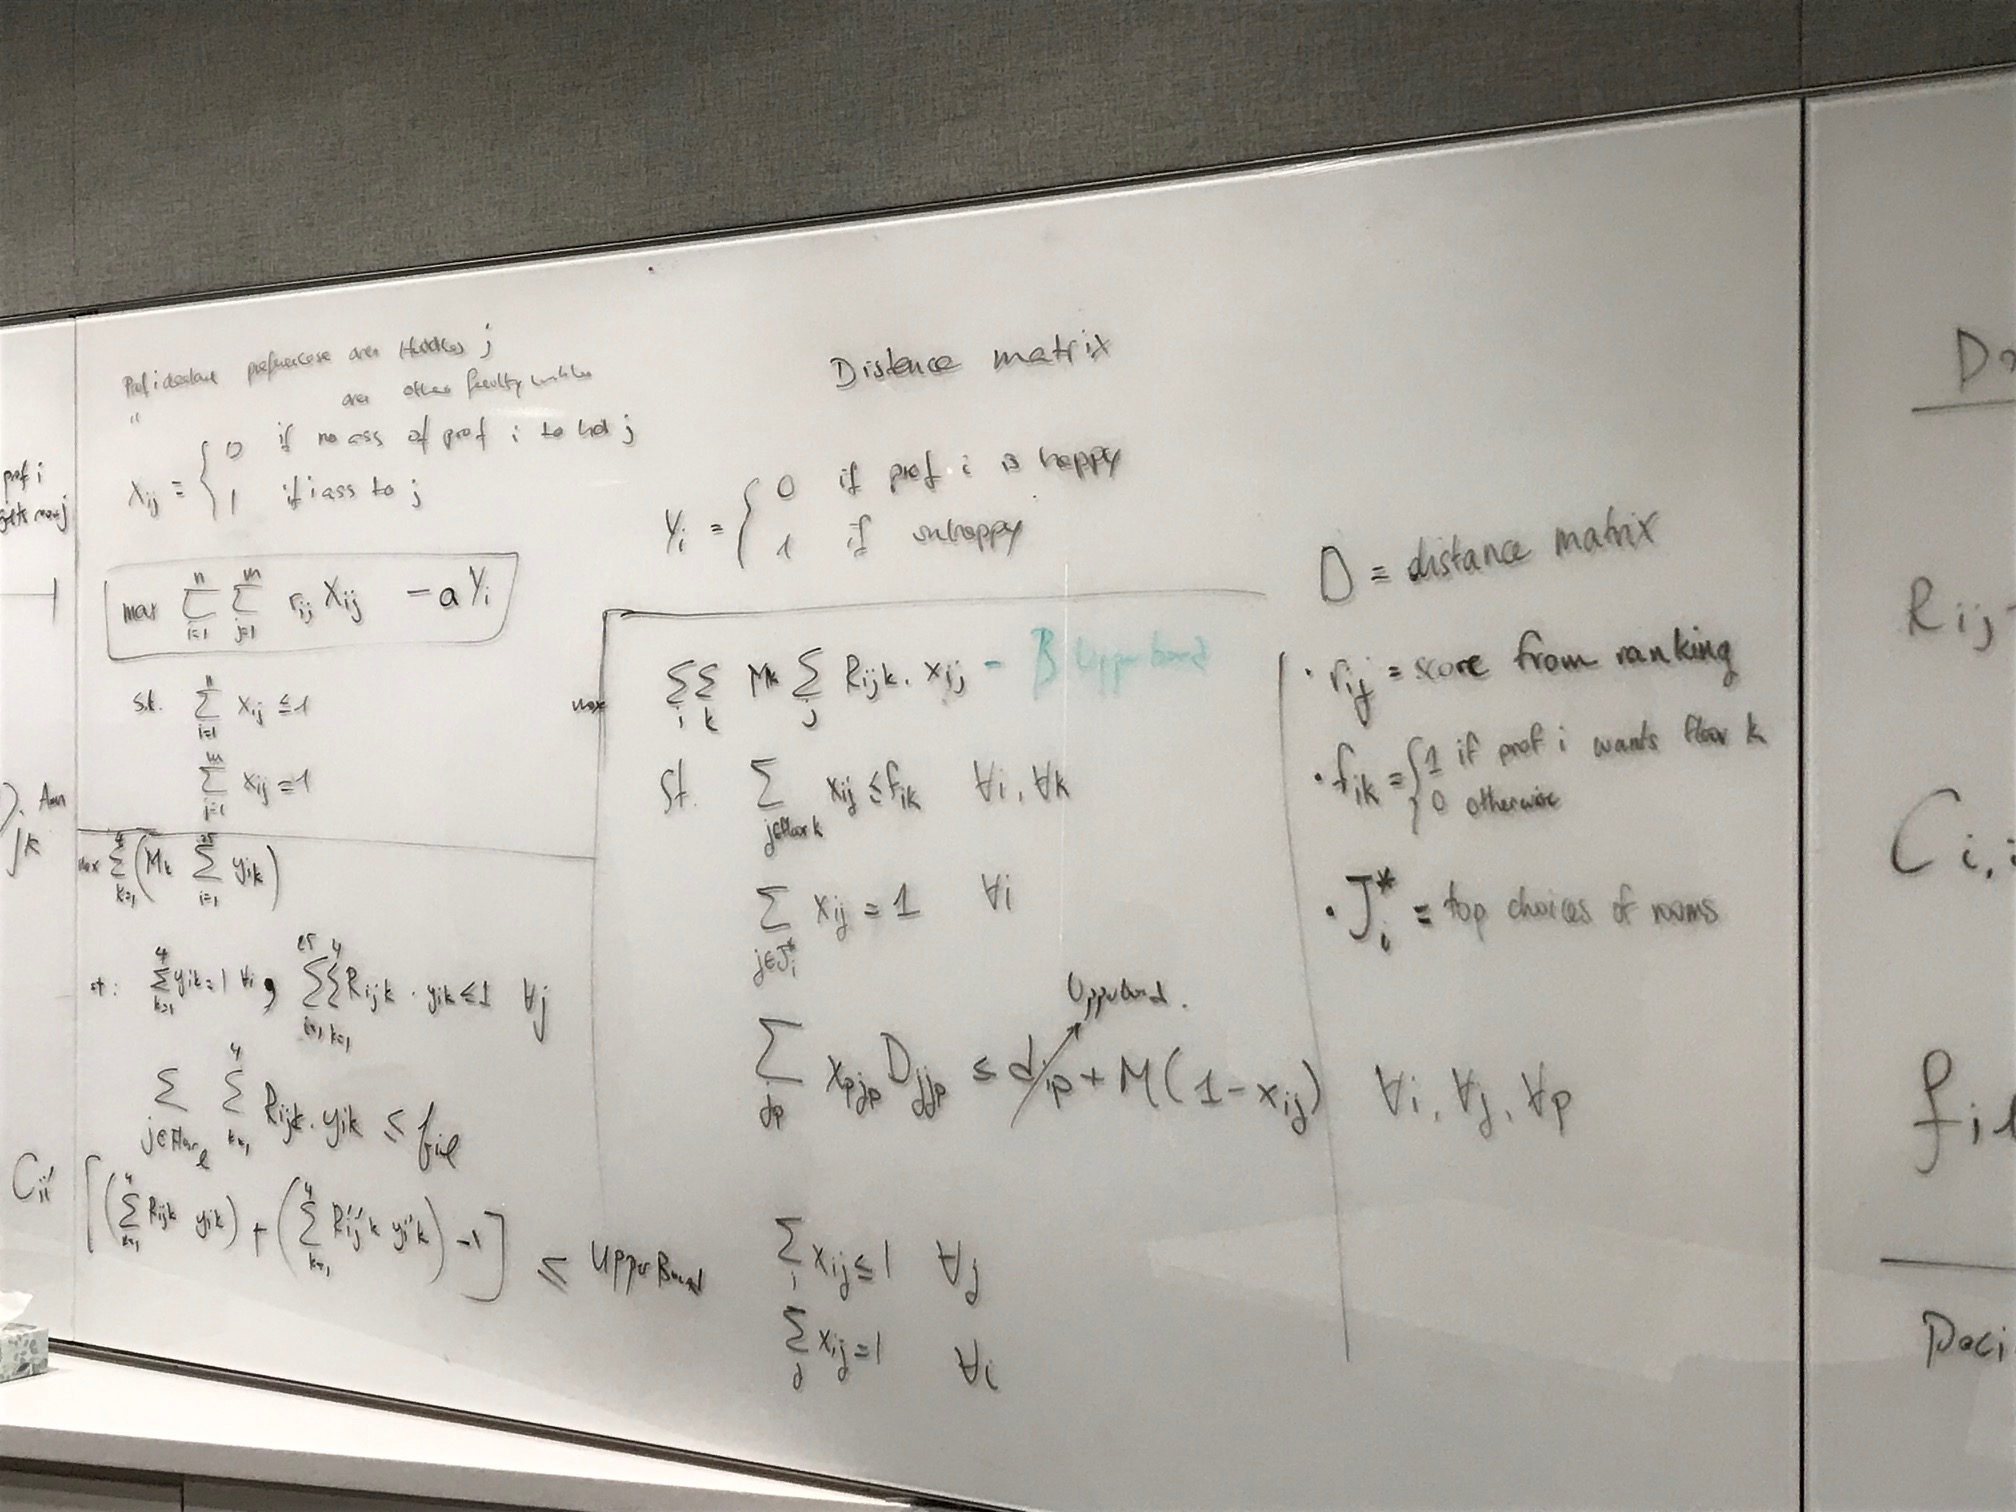 prof i
gets room j
Prof i declare preferences over Huddles j
" over other faculty
X_ij = { 0 if no ass of prof i to hd j
1 if i ass to j
max Σ_{i=1}^{n} Σ_{j=1}^{m} r_ij X_ij - a Y_i
s.t. Σ_{i=1}^{n} x_ij ≤ 1
Σ_{j=1}^{m} x_ij = 1
max Σ_{k=1}^{4} (M_k Σ_{i=1}^{25} y_ik)
st: Σ_{k=1}^{4} y_ik = 1 ∀i, Σ_{i=1}^{25} Σ_{k=1}^{4} R_ijk · y_ik ≤ 1 ∀j
Σ_{j∈Floor_l} Σ_{k=1}^{4} R_ijk · y_ik ≤ f_il
C_ii' [(Σ_{k=1}^{4} R_ijk y_ik) + (Σ_{k=1}^{4} R_i'j'k y_i'k) - 1] ≤ UpperBound
Distance matrix
Y_i = { 0 if prof i is happy
1 if unhappy
max Σ_i Σ_k M_k Σ_j R_ijk · x_ij - B Upperbound
st. Σ_{j∈floor k} x_ij ≤ f_ik ∀i, ∀k
Σ_{j∈J_i^*} x_ij = 1 ∀i
Upperbound.
Σ_{j_p} x_{pj_p} D_{jj_p} ≤ d_ip + M(1-x_ij) ∀i, ∀j, ∀p
Σ_i x_ij ≤ 1 ∀j
Σ_j x_ij = 1 ∀i
D = distance matrix
· r_ij = score from ranking
· f_ik = { 1 if prof i wants floor k
0 otherwise
· J_i^* = top choices of rooms
R_ij
C_i,
f_il